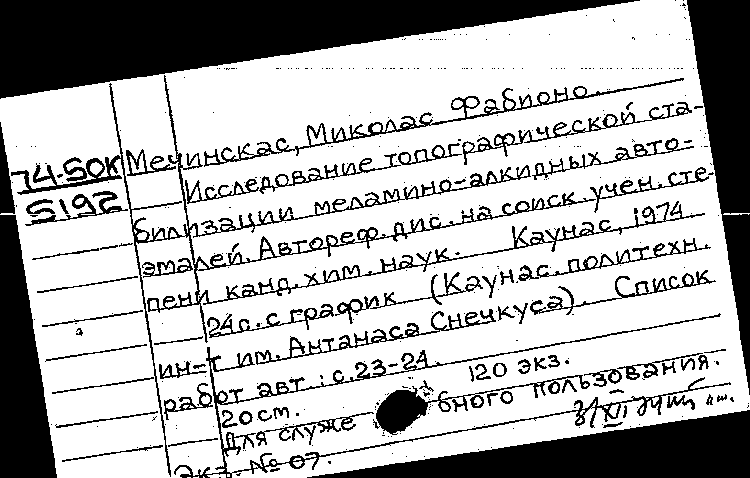 74-50К Мечинскас, Миколас Фабионо.
5192 Исследование топографической ста-
билизации меламино-алкидных авто-
эмалей. Автореф. дис. на соиск. учен. сте-
пени канд. хим. наук. Каунас, 1974
24с. с график (Каунас. политехн.
ин-т им. Антанаса Снечкуса). Список
работ авт.: с. 23-24.
20см. 120 экз.
Для служе бного пользования.
Экз. № 07.